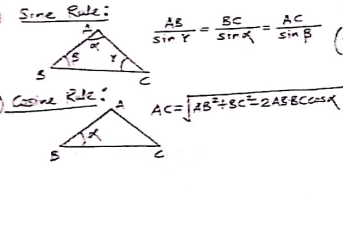 Sine Rule:
A
α
β γ
B C
AB/sin γ = BC/sin α = AC/sin β
Cosine Rule:
A
α
B C
AC=√AB²+BC²-2AB·BC cos α